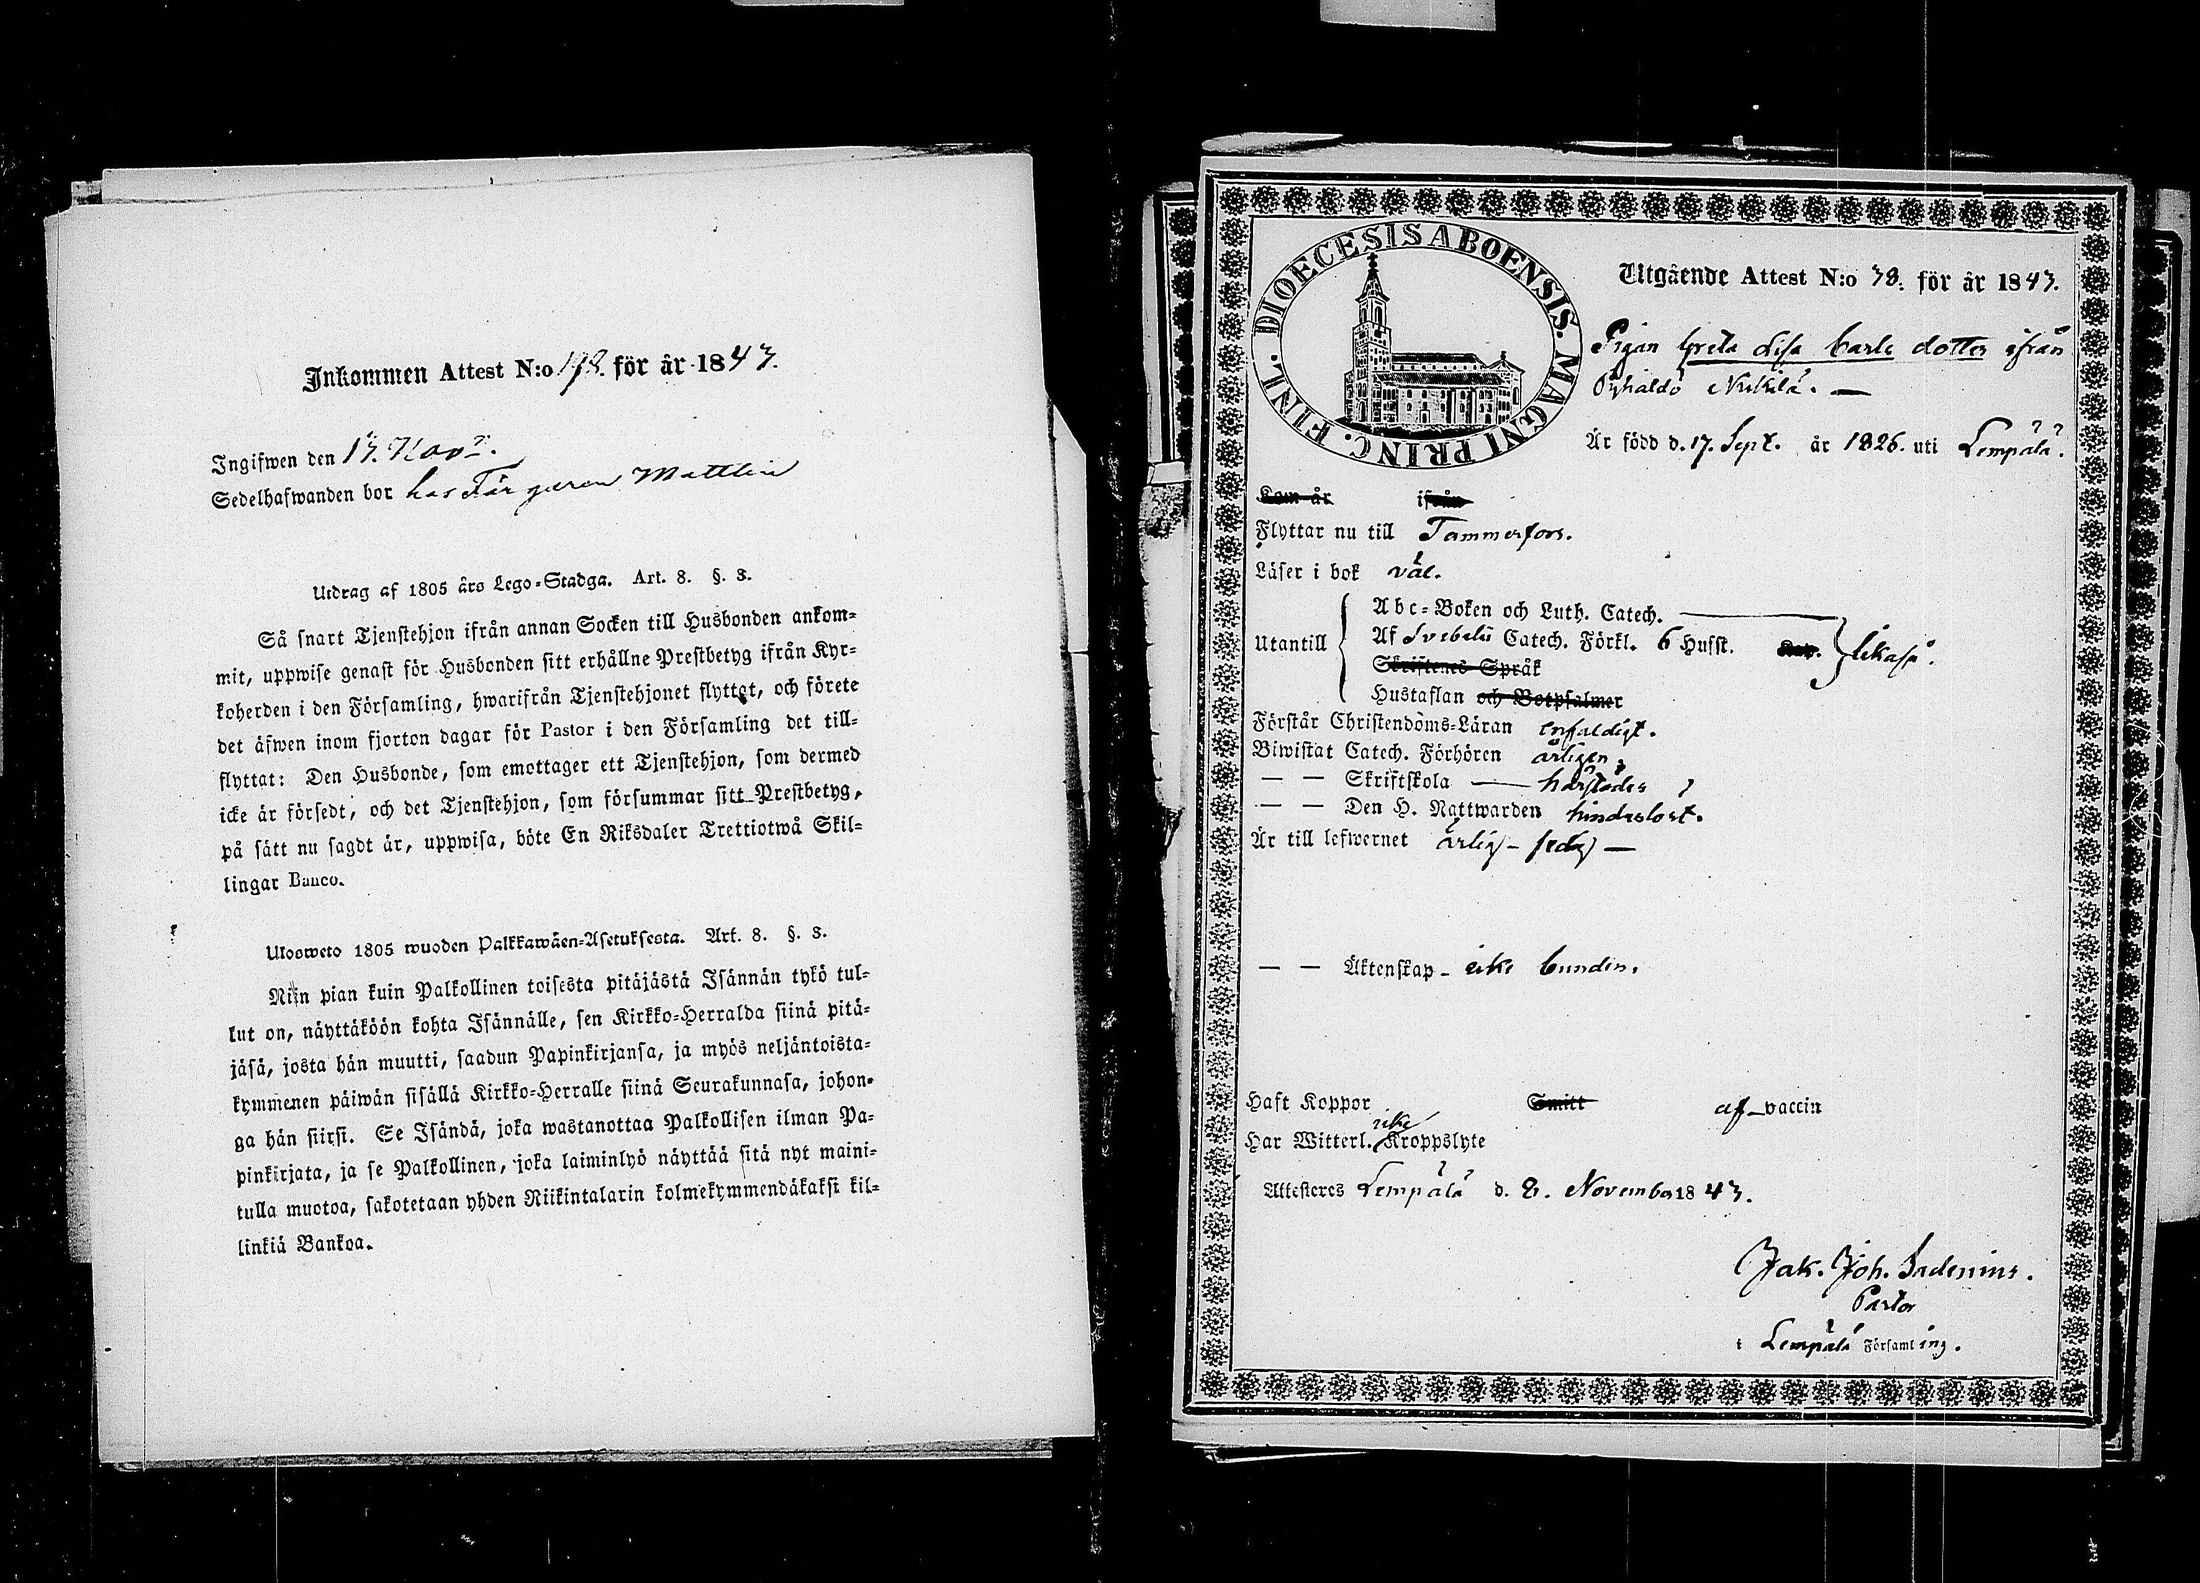 Inkommen Attest N:o 198. för år 1843.
Ingifwen den 17. Nov.
Sedelhafwanden bor hos Färgaren Mattlin
Utdrag af 1805 års Lego-Stadga. Art. 8. §. 3.
Så snart Tjenstehjon ifrån annan Socken till Husbonden ankom-
mit, uppwise genast för Husbonden sitt erhållne Prestbetyg ifrån Kyr-
koherden i den Församling, hwarifrån Tjenstehjonet flyttat, och förete
det äfwen inom fjorton dagar för Pastor i den Församling det till-
flyttat: Den Husbonde, som emottager ett Tjenstehjon, som dermed
icke är försedt, och det Tjenstehjon, som försummar sitt Prestbetyg,
på sätt nu sagdt är, uppwisa, böte En Riksdaler Trettiotwå Skil-
lingar Banco.
Ulosweto 1805 wuoden Palkkawäen-Asetuksesta. Art. 8. §. 3.
Niin pian kuin Palkollinen toisesta pitäjästä Isännän tykö tul-
lut on, näyttäköön kohta Isännälle, sen Kirkko-Herralda siinä pitä-
jäsä, josta hän muutti, saadun Papinkirjansa, ja myös neljäntoista-
kymmenen päiwän sisällä Kirkko-Herralle siinä Seurakunnasa, johon-
ga hän siirsi. Se Isändä, joka wastanottaa Palkollisen ilman Pa-
pinkirjata, ja se Palkollinen, joka laiminlyö näyttää sitä nyt maini-
tulla muotoa, sakotetaan yhden Riikintalarin kolmekymmendäkaksi kil-
linkiä Bankoa.
DIOECESIS ABOENSIS. MAGNI PRINC. FINL.
Utgående Attest N:o 78. för år 1843.
Pigan Greta Lisa Carls dotter ifrån
Pyhäldö Nirkilä.
Är född d. 17. Sept. år 1826. uti Lempälä.
Kom år ifrån
Flyttar nu till Tammerfors.
Läser i bok väl.
Abc-Boken och Luth. Catech.
Utantill Af Svebelii Catech. Förkl. 6 Hufst. Kap. likaså.
Skriftenes Språk
Hustaflan och Botpsalmer
Förstår Christendoms-Läran enfaldigt.
Biwistat Catech. Förhören årligen,
— — Skriftskola — härstädes,
— — Den H. Nattwarden hindreslöst.
Är till lefwernet ärlig - sedig —
— — Äktenskap - icke bunden.
Haft Koppor Smitt af vaccin
Har Witterl. icke Kroppslyte
Attesteres Lempälä d. 8. November 1843.
Jak. Joh. Sadenius.
Pastor
i Lempälä Församling.